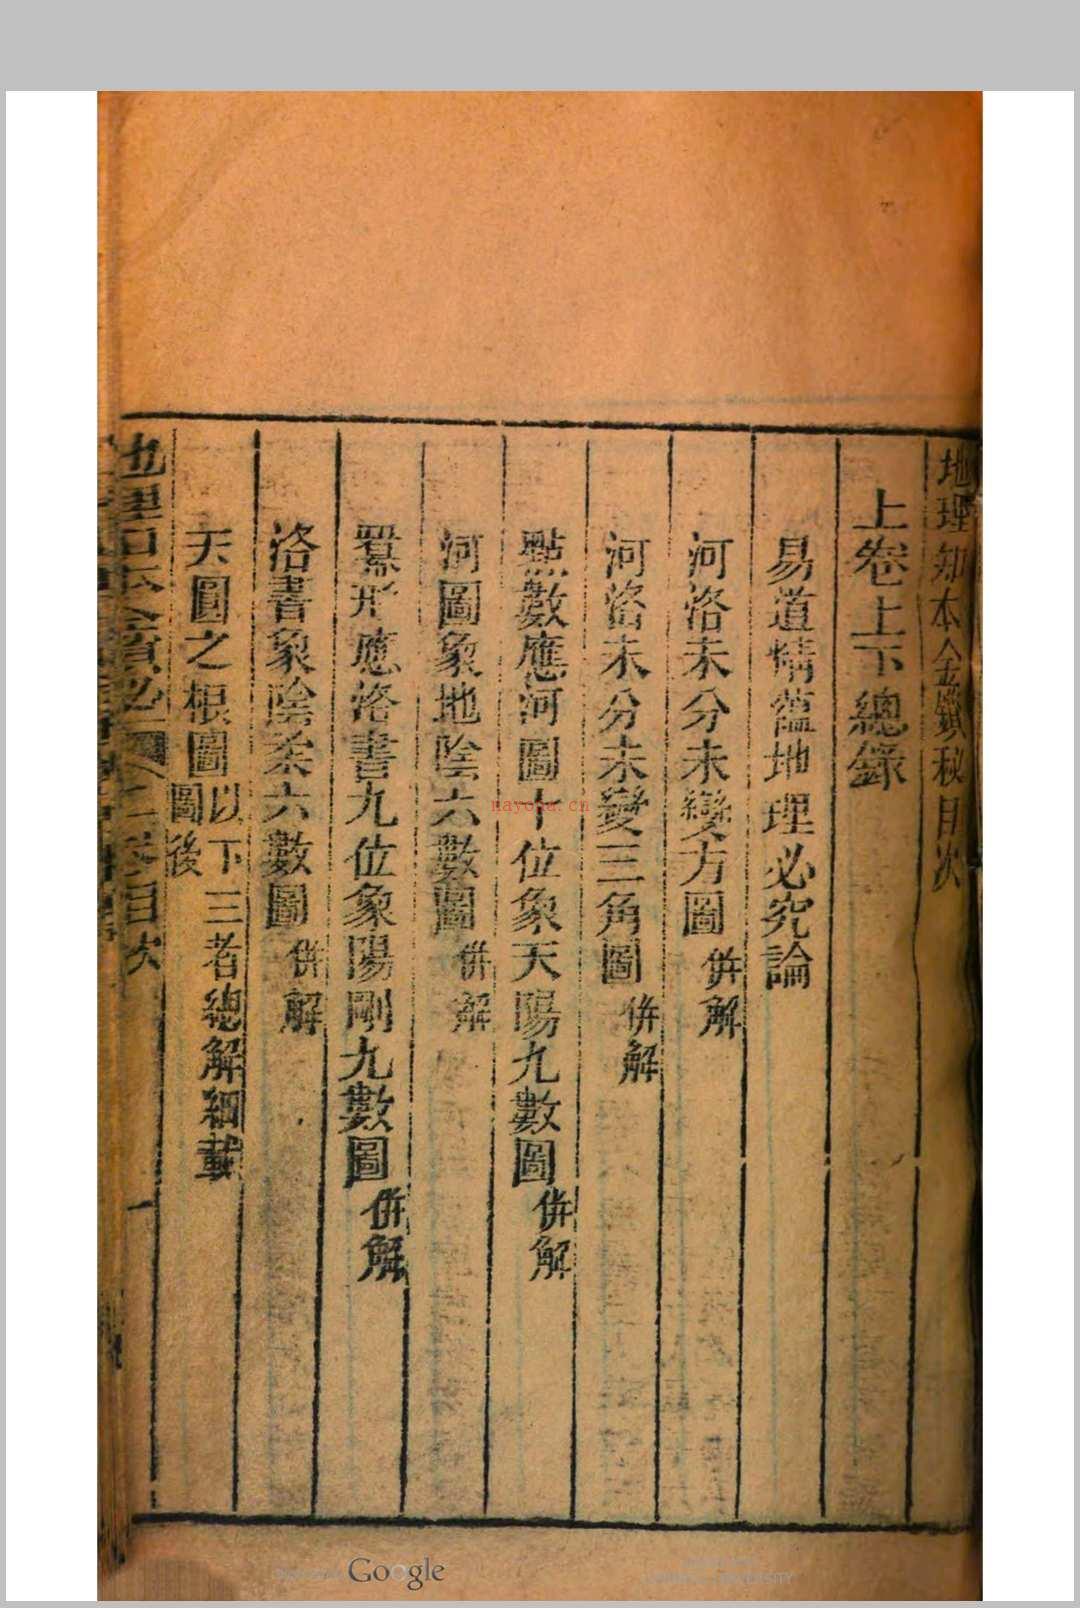 地理知本金鎖秘目次
上卷上下總錄
易道情蘊地理必究論
河洛未分未變方圖 併解
河洛未分未變三角圖 併解
點數應河圖十位象天陽九數圖 併解
河圖象地陰六數圖 併解
冪形應洛書九位象陽剛九數圖 併解
洛書象陰柔六數圖 併解
天圓之根圖 以下三者總解細載
圖後
地理知本金鎖秘 目次 一
nayona.cn
Google